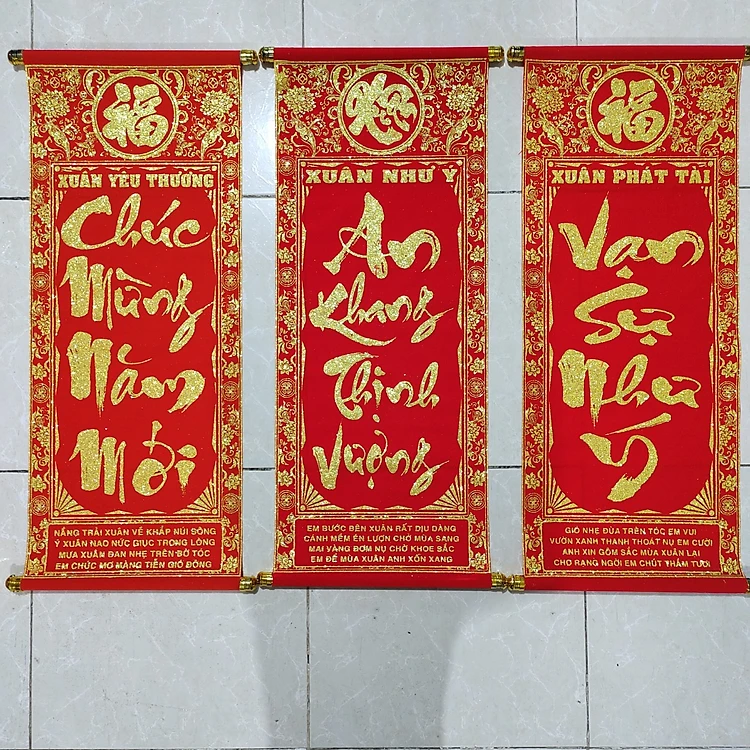 福
XUÂN YÊU THƯƠNG
Chúc
Mừng
Năm
Mới
NẮNG TRẢI XUÂN VỀ KHẮP NÚI SÔNG
Ý XUÂN NAO NỨC GIỤC TRONG LÒNG
MƯA XUÂN ĐAN NHẸ TRÊN BỜ TÓC
EM CHÚC MƠ MÀNG TIỄN GIÓ ĐÔNG
XUÂN NHƯ Ý
An
Khang
Thịnh
Vượng
EM BƯỚC ĐẾN XUÂN RẤT DỊU DÀNG
CÁNH MỀM ÉN LƯỢN CHỞ MÙA SANG
MAI VÀNG ĐƠM NỤ CHỜ KHOE SẮC
EM ĐỂ MÙA XUÂN ANH XỐN XANG
福
XUÂN PHÁT TÀI
Vạn
Sự
Như
Ý
GIÓ NHẸ ĐÙA TRÊN TÓC EM VUI
VƯỜN XANH THANH THOÁT NỤ EM CƯỜI
ANH XIN GÔM SẮC MÙA XUÂN LẠI
CHO RẠNG NGỜI EM CHÚT THẮM TƯƠI